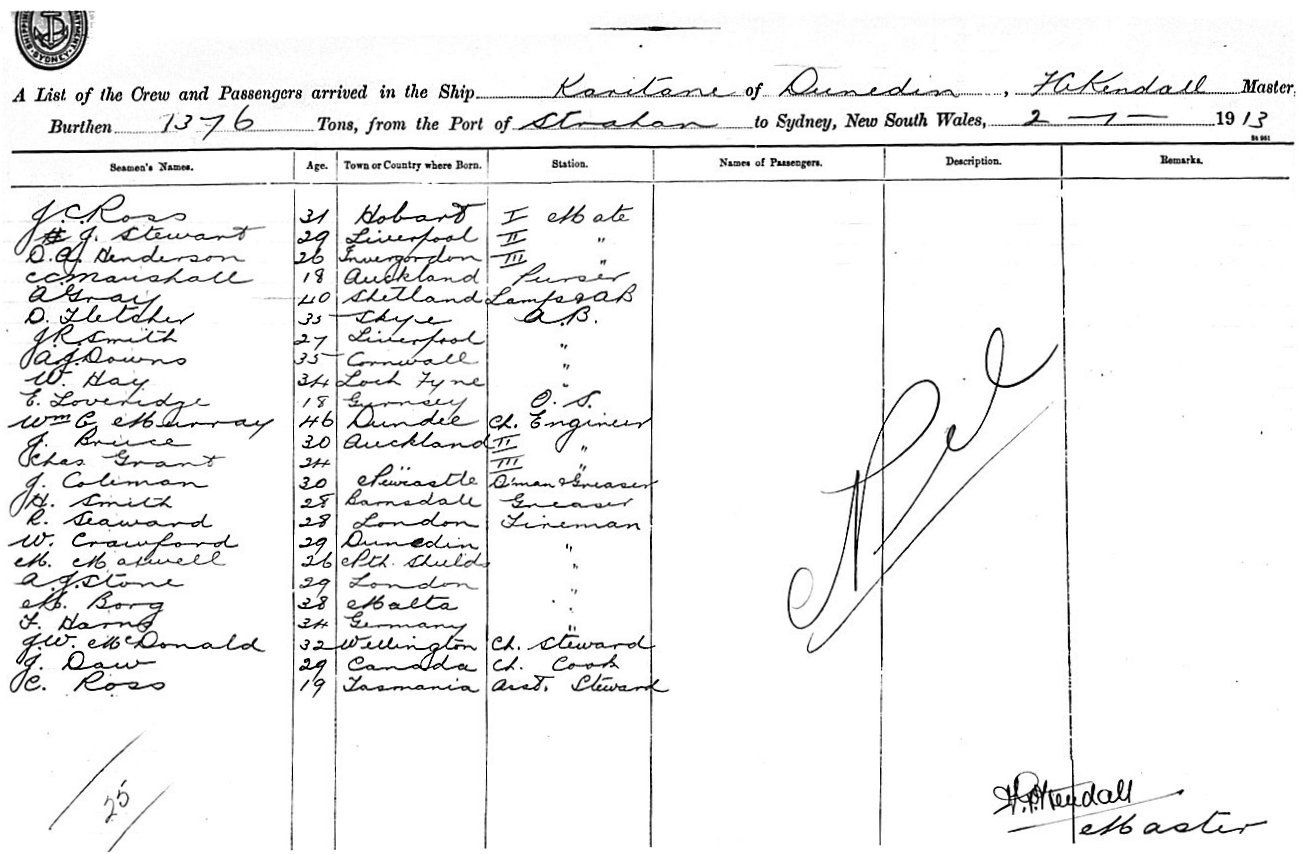 SYDNEY
A List of the Crew and Passengers arrived in the Ship Karitane of Dunedin, Kendall Master,
Burthen 1376 Tons, from the Port of Strahan to Sydney, New South Wales, 2 — 1 — 1913
Seamen's Names. Age. Town or Country where Born. Station. Names of Passengers. Description. Remarks.
J. C. Ross 31 Hobart I Mate
J. Stewart 29 Liverpool II "
D. Henderson 26 Invergordon III "
C C Marshall 18 Auckland Purser
A Gray 40 Shetland Lamps & AB
D. Fletcher 35 Skye A.B.
J. R. Smith 27 Liverpool "
A. J. Downs 35 Cornwall "
W. Hay 34 Loch Fyne "
E. Loveridge 18 Gurnsey O. S.
Wm C Murray 46 Dundee Ch. Engineer
J. Bruce 30 Auckland II "
Chas. Grant 24 " III "
J. Coliman 30 Newcastle D'man & Greaser
H. Smith 28 Barnsdale Greaser
R. Seaward 28 London Fireman
W. Crawford 29 Dunedin "
M. 26 Nth. Shields "
A. J. Stone 29 London "
M. Borg 38 Malta "
F. 34 Germany "
J. W. McDonald 32 Wellington Ch. Steward
J. Daw 29 Canada Ch. Cook
C. Ross 19 Tasmania Asst. Steward
Nil
25
Kendall
Master